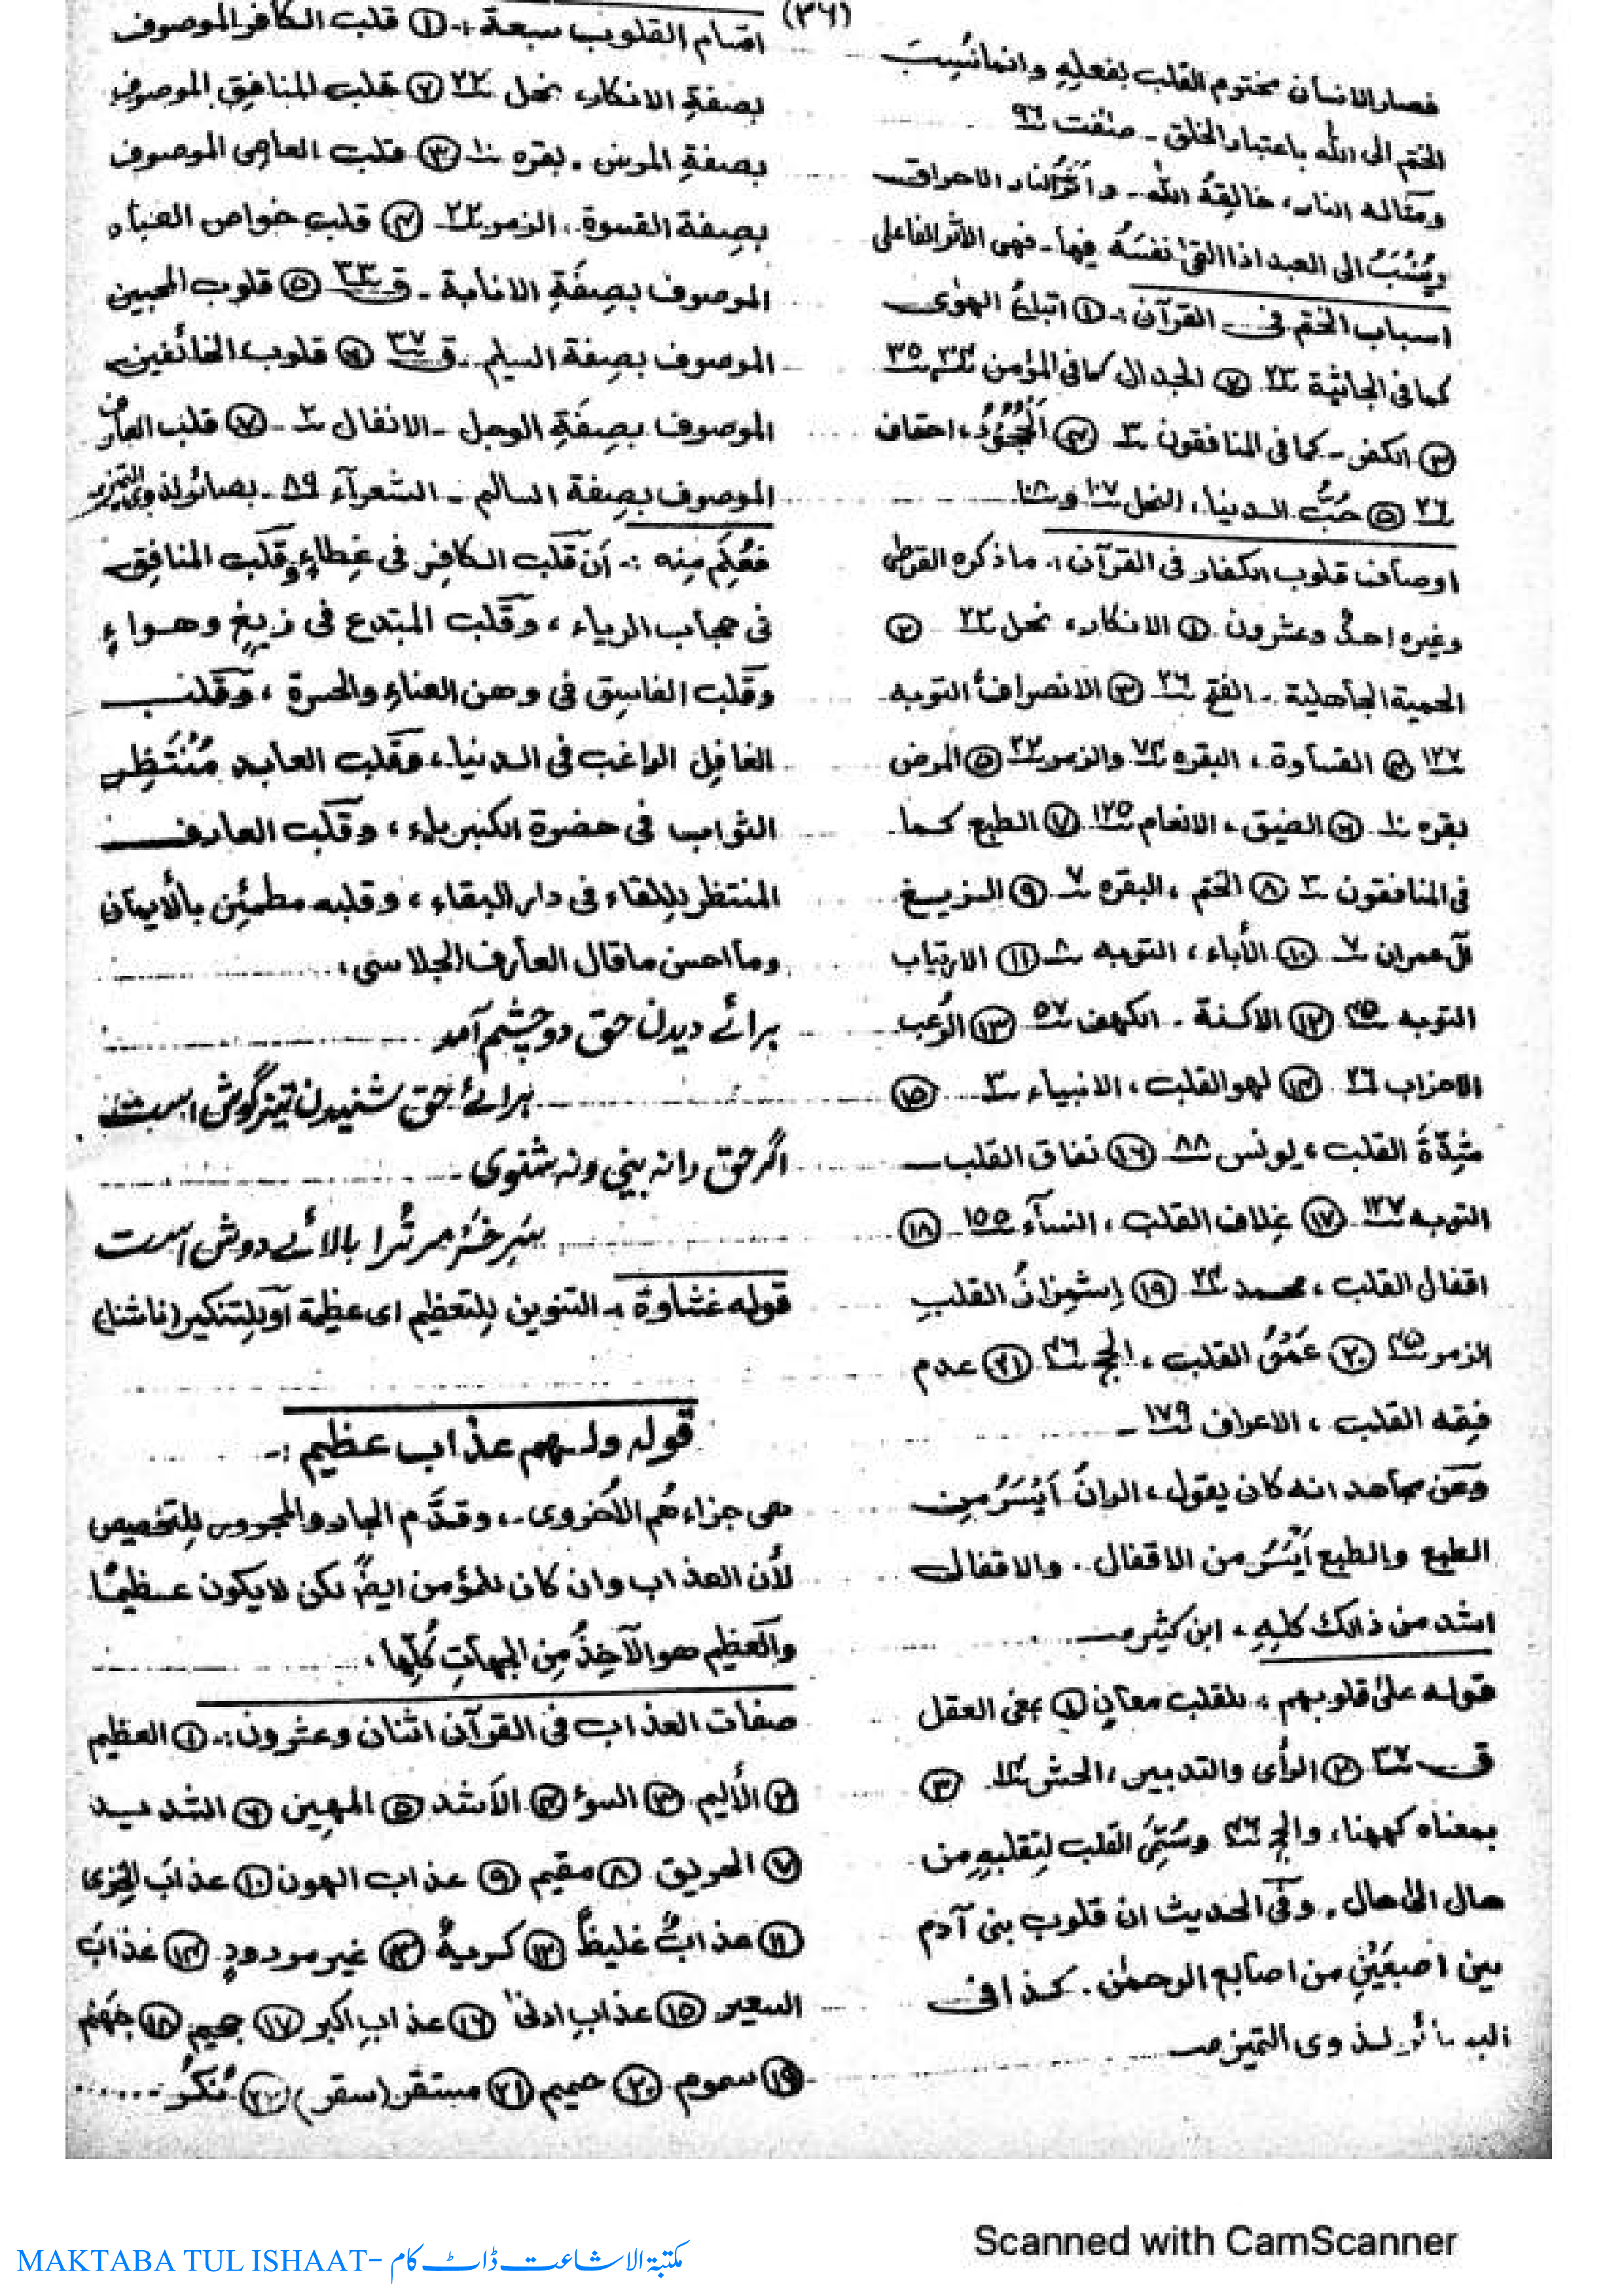 (٣٦)
فصار الانسان مختوم القلب بفعلهٖ وانما نُسِبَ
الختم الی اللّٰه باعتبار الخلق ـ صٰفٰت ٩٦
ومثاله النار، خالقهُ اللّٰه ـ واَثَرُ النار الاحراق
ويُنْسَبُ الی العبد اذا القیٰ نفسَهُ فيها ـ فهی الاثر الفاعلی
اسباب الختم فی القرآن :ـ ① اتباعُ الهوٰی
كما فی الجاثية ٢٣ ② الجدال كما فی المؤمن ٣٥
③ الكفر ـ كما فی المنافقون ٣ ④ اَلْجُحُوْدُ، احقاف
٢٦ ⑤ حُبُّ الدنيا، النحل ١٠٧ و ١٠٨
اوصاف قلوب الكفار فی القرآن :ـ ما ذكره القرطبی
وغيره احدٌ وعشرون ① الانكار، نحل ٢٢ ②
الحمية الجاهلية ـ الفتح ٢٦ ③ الانصراف التوبه
١٢٧ ④ القساوة، البقره ٧٤ والزمر ٢٢ ⑤ المرض
بقره ١٠ ⑥ الضيق، الانعام ١٢٥ ⑦ الطبع كما
فی المنافقون ٣ ⑧ الختم، البقره ٧ ⑨ الزيغ
آل عمران ٧ ⑩ الأباء، التوبه ٨ ⑪ الارتياب
التوبه ٤٥ ⑫ الاكنة ـ الكهف ٥٧ ⑬ الرُعب
الاحزاب ٢٦ ⑭ لهو القلب، الانبياء ٣ ⑮
شِدّةُ القلب، يونس ٨٨ ⑯ نفاق القلب
التوبه ١٢٧ ⑰ غلاف القلب، النسآء ١٥٥ ⑱
اقفال القلب، محمد ٢٤ ⑲ اِشمِزازُ القلبِ
الزمر ٤٥ ⑳ عَمْیُ القلب، الحج ٤٦ ㉑ عدم
فِقه القلب، الاعراف ١٧٩ ـ
وعن مجاهد انه كان يقول، الرانُ اَيْسَرُ مِن
الطبع والطبع اَيْسَرُ من الاقفال. والاقفال
اشد من ذالك كلِهٖ، ابن كثير
قوله علیٰ قلوبهم، للقلب معانٍ ① بمعنی العقل
قٓ ٣٧ ② الرأی والتدبير، الحشر ١٤ ③
بمعناه كههنا، والحج ٤٦ وسُمِّیَ القلب لِتقلبهٖ من
حال الیٰ حال. وفی الحديث ان قلوب بنی آدم
بين اصبعَيْنِ من اصابع الرحمٰن. كذا فی
البصائر لذوی التميز صـ
اقسام القلوب سبعة :ـ ① قلب الكافر الموصوف
بصفةِ الانكار، نحل ٢٢ ② قلب المنافق الموصوف
بصفةِ المرض ـ بقره ١٠ ③ قلب العاصی الموصوف
بصِفة القسوة. الزمر ٢٢ ④ قلب خواص العباد
الموصوف بصِفَةِ الانابة ـ قٓ ٣٣ ⑤ قلوب المحبين
الموصوف بصِفة السليم ـ قٓ ٣٧ ⑥ قلوب الخائفين
الموصوف بصِفَةِ الوجل ـ الانفال ٢ ـ ⑦ قلب العارف
الموصوف بصِفة السالم ـ الشعرآء ٨٩ ـ بصائر لذوی التميز
فعُلِمَ مِنه :ـ اَنّ قَلب الكافر فی غِطاءٍ وقَلب المنافِق
فی حجاب الرياء، وقَلب المبتدع فی زيغٍ وهواءٍ
وقَلب الفاسِق فی وهن العناءِ والحسرة، وقَلب
الغافِل الراغب فی الدنيا، وقَلب العابد مُنْتَظِر
الثواب فی حضرة الكبرياء، وقَلب العارف
المنتظر لِلِقاء فی دار البقاء، وقلبه مطمئِن بالأيمان
وما احسن ما قال العارف الجلاسی،
برائے دیدن حق دو چشم آمد
برائے حق شنیدن تیز گوش است
اگر حق را نہ بینی و نہ شنوی
سَرِ خَر مر تُرا بالائے دوش است
قوله غشاوة ـ التنوين لِلتعظيم ای عظِيمة اَو لِلتنكير (ناشنا)
قوله ولهم عذاب عظيم :ـ
هی جزاءهُم الاُخروی ـ، وقدَّم الجار والمجرور لِلتخصيص
لأن العذاب وان كان للمؤمن ايضً لكن لا يكون عظيمًا
والعظيم هو الآخِذُ مِن الجهاتِ كُلِّها،
صفات العذاب فی القرآن اثنان وعشرون :ـ ① العظيم
② الأليم ③ السوء ④ الاَشد ⑤ المهين ⑥ الشديد
⑦ الحريق ⑧ مقيم ⑨ عذاب الهون ⑩ عذاب الخِزی
⑪ عذابٌ غليظٌ ⑫ كريهٌ ⑬ غير مردودٍ ⑭ عذابَ
السعير ⑮ عذابِ ادنیٰ ⑯ عذابِ اكبر ⑰ جحيم ⑱ جَهَنم
⑲ سموم ⑳ حميم ㉑ مستقر (سقر) ㉒ نُكرُ
Scanned with CamScanner
MAKTABA TUL ISHAAT- مکتبۃ الاشاعت ڈاٹ کام